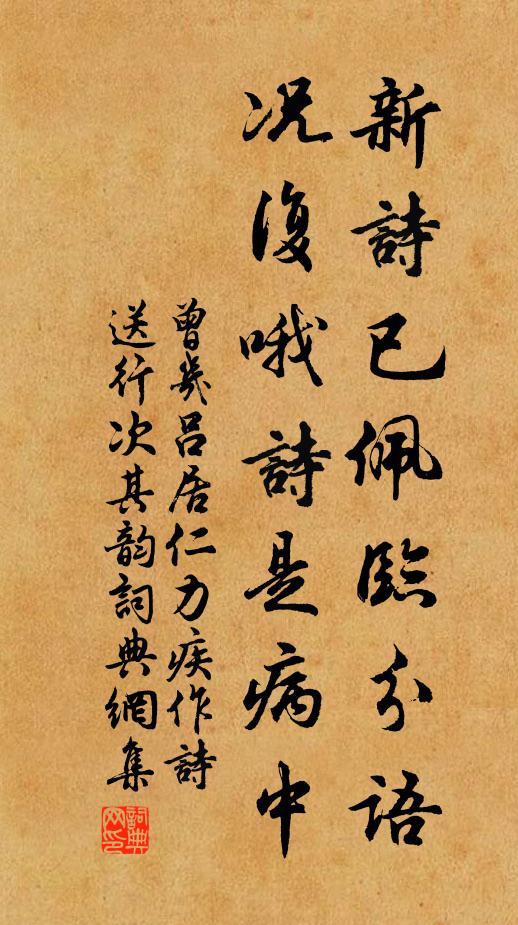 新詩已佩臨分語
况復哦詩是病中
曾幾吕居仁力疾作詩
送行次其韵詞典網集
詞典网印